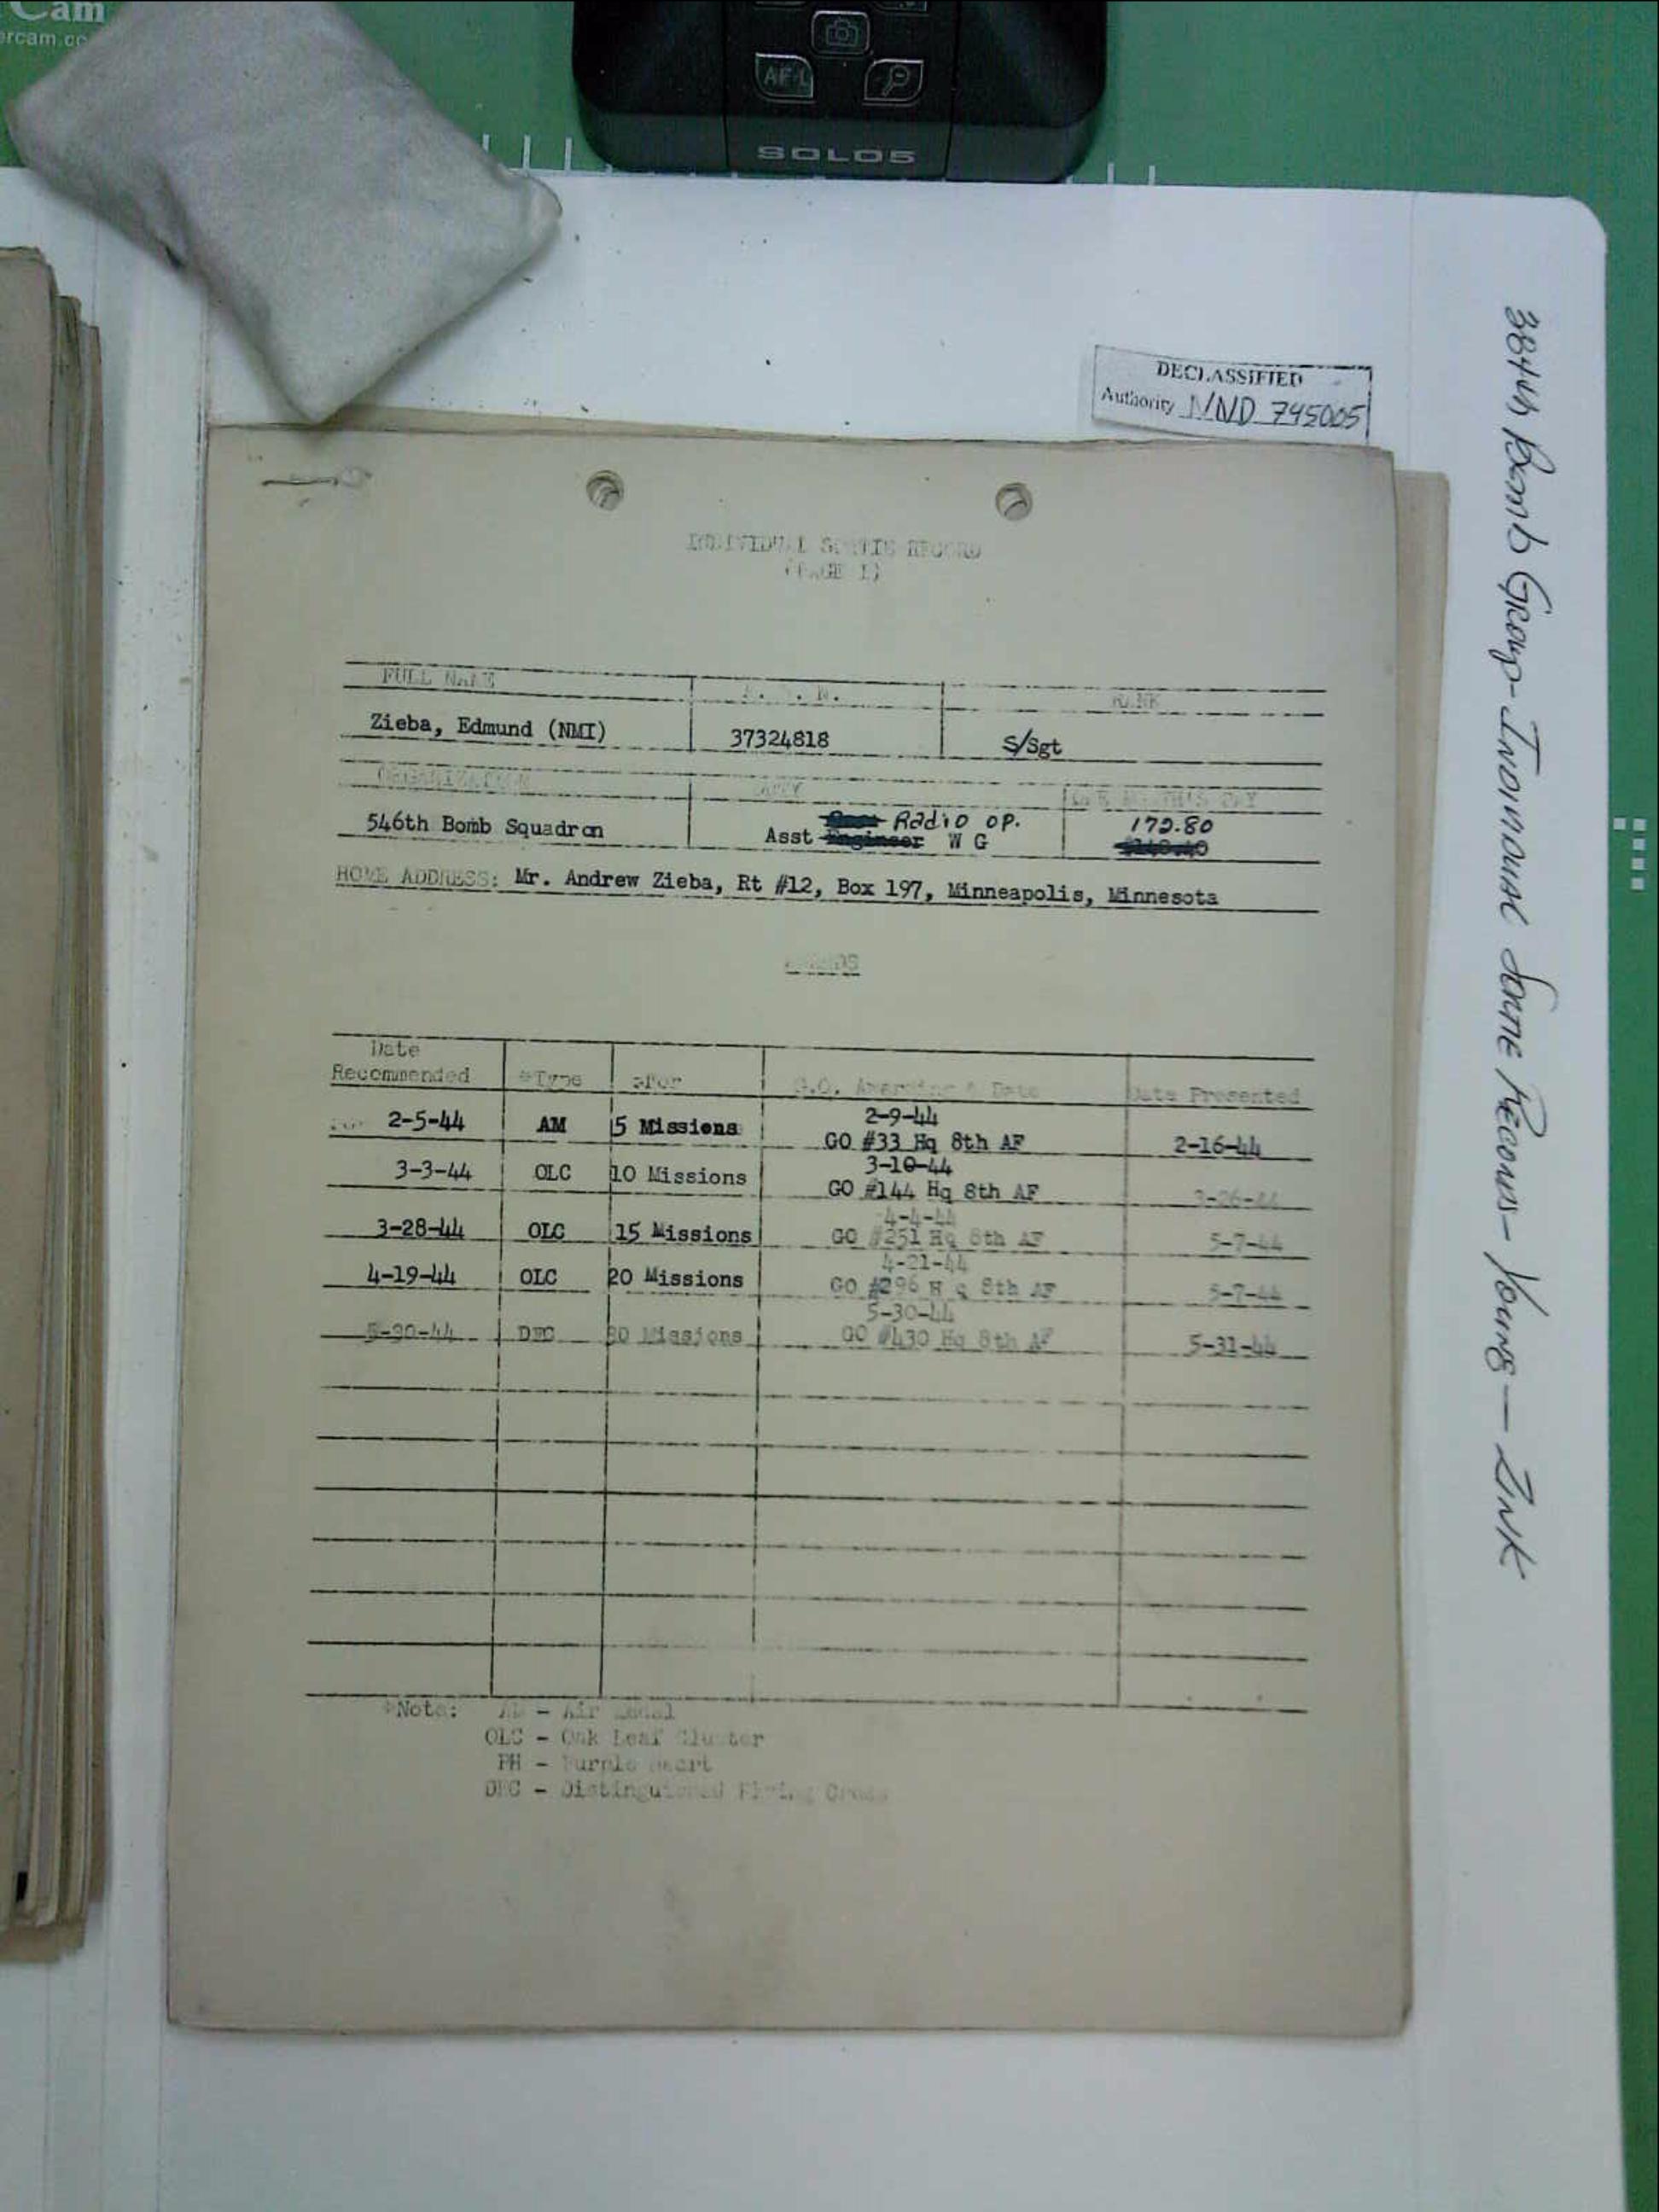 Cam
ercam.co
AF-L
SOLO5
DECLASSIFIED
Authority NND 745005
384th Bomb Group - Individual Sortie Records - Young — Zink
INDIVIDUAL SORTIE RECORD
(PAGE 1)
FULL NAME RANK
Zieba, Edmund (NMI) 37324818 S/Sgt
ORGANIZATION DUTY
Radio op. 172.80
546th Bomb Squadron Asst Engineer W G
HOME ADDRESS: Mr. Andrew Zieba, Rt #12, Box 197, Minneapolis, Minnesota
AWARDS
Date
Recommended *Type *For G.O. Awarding & Date Date Presented
2-9-44
2-5-44 AM 5 Missions GO #33 Hq 8th AF 2-16-44
3-10-44
3-3-44 OLC 10 Missions GO #144 Hq 8th AF 3-26-44
4-4-44
3-28-44 OLC 15 Missions GO #251 Hq 8th AF 5-7-44
4-21-44
4-19-44 OLC 20 Missions GO #296 H q 8th AF 5-7-44
5-30-44
DFC 30 Missions GO #430 Hq 8th AF 5-31-44
*Note: AM - Air Medal
OLC - Oak Leaf Cluster
PH - Purple Heart
DFC - Distinguished Flying Cross